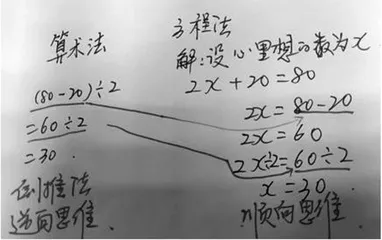 算术法
(80-20)÷2
=60÷2
=30.
倒推法
逆向思维.
方程法
解:设心里想的数为x
2x+20=80
2x=80-20
2x=60
2x÷2=60÷2
x=30.
顺向思维.